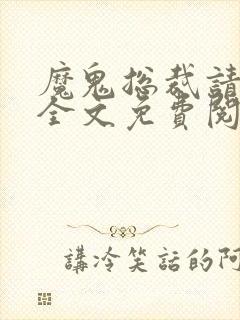 魔鬼總裁請
全文免費閱
講冷笑話的阿